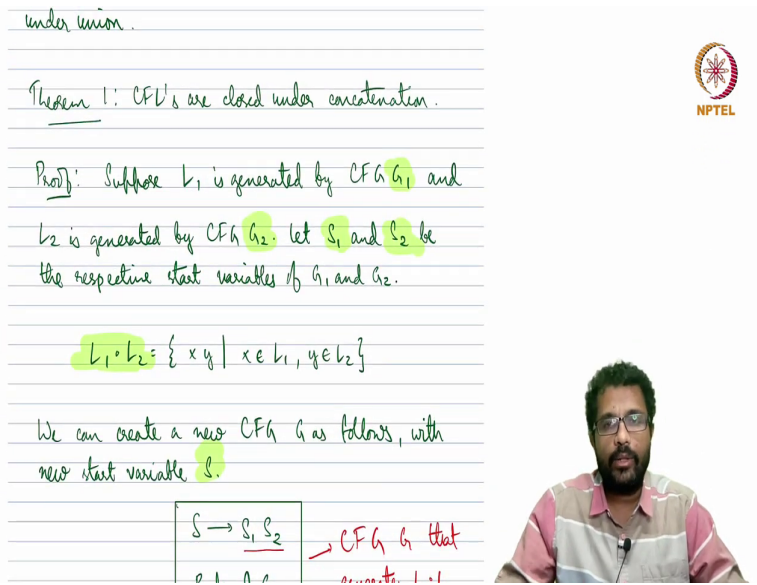 under union.
Theorem 1: CFL's are closed under concatenation.
NPTEL
Proof: Suppose L₁ is generated by CFG G₁ and
L₂ is generated by CFG G₂. Let S₁ and S₂ be
the respective start variables of G₁ and G₂.
L₁∘L₂ = { xy | x ∈ L₁, y ∈ L₂}
We can create a new CFG G as follows, with
new start variable S.
S → S₁ S₂
→ CFG G that